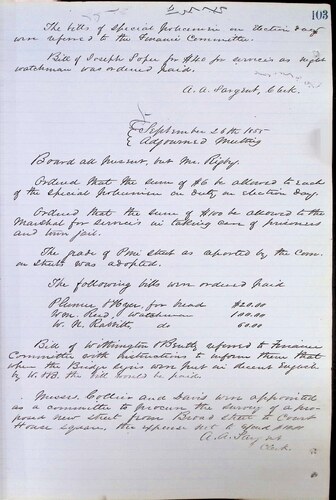 103
The bills of Special Policemen on Election day
were referred to the Finance Committee.
Bill of Joseph Soper for $40 for services as night
watchman was ordered paid.
A. A. Sargent, Clerk.
September 26th 1855
Adjourned Meeting
Board all present, but Mr. Rigby.
Ordered that the sum of $6 be allowed to each
of the Special Policemen on duty on election day.
Ordered that the sum of $100 be allowed to the
Marshal for services in taking care of prisoners
and town jail.
The grade of Pine street as reported by the Com.
on Streets was adopted.
The following bills were ordered paid
Plumer & Hyer, for head $20.00
Wm. Reed, Watchman 100.00
W. N. do 60.00
Bill of Withington & Bently referred to Finance
Committee with instructions to inform them that
when the Bridge was put in decent
by W. & B. the bill would be paid.
Messrs. Collier and Davis were appointed
as a committee to procure the survey of a pro-
posed new street from Broad Street to Court
House square, the expense not to exceed
A. A. Sargent
Clerk